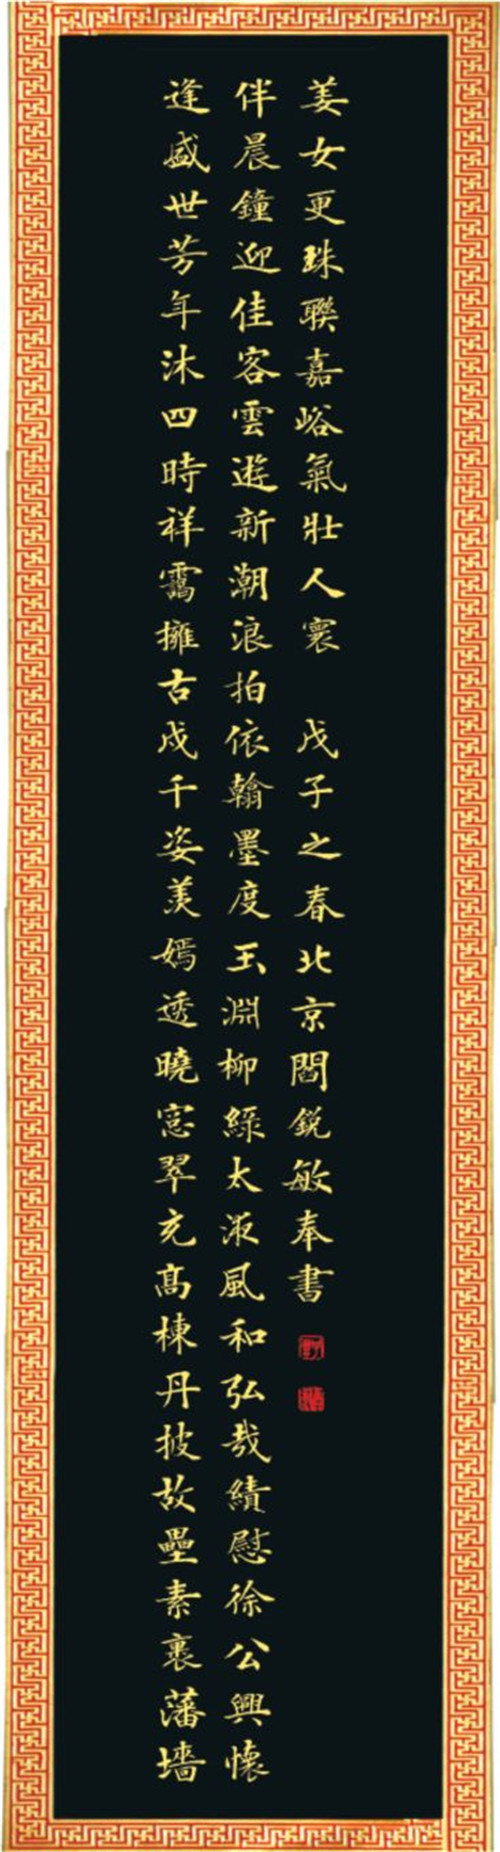 逢盛世芳年沐四時祥靄擁古戍千姿羨嫣透曉窓翠充髙棟丹披故壘素裹藩墻
伴晨鐘迎佳客雲遊新潮浪拍依翰墨度玉淵柳綠太液風和弘哉績慰徐公興懷
姜女更珠聯嘉峪氣壯人寰 戊子之春北京閻銳敏奉書